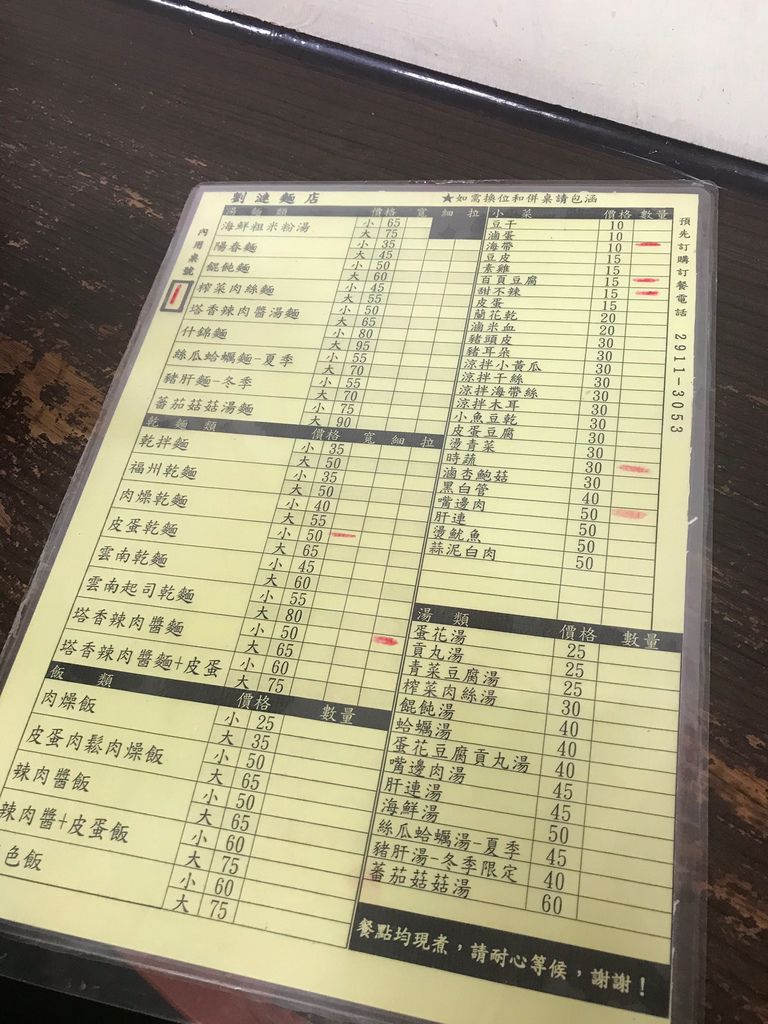 劉漣麵店
★如需換位和併桌請包涵
內用桌號
湯麵類 價格 寬 細 拉
海鮮粗米粉湯 小 65
大 75
陽春麵 小 35
大 45
餛飩麵 小 50
大 60
榨菜肉絲麵 小 45
大 55
塔香辣肉醬湯麵 小 50
大 65
什錦麵 小 80
大 95
絲瓜蛤蠣麵-夏季 小 55
大 70
豬肝麵-冬季 小 55
大 70
蕃茄菇菇湯麵 小 75
大 90
乾麵類 價格 寬 細 拉
乾拌麵 小 35
大 50
福州乾麵 小 35
大 50
肉燥乾麵 小 40
大 55
皮蛋乾麵 小 50
大 65
雲南乾麵 小 45
大 60
雲南起司乾麵 小 55
大 80
塔香辣肉醬麵 小 50
大 65
塔香辣肉醬麵+皮蛋 小 60
大 75
飯類 價格 數量
肉燥飯 小 25
大 35
皮蛋肉鬆肉燥飯 小 50
大 65
辣肉醬飯 小 50
大 65
辣肉醬+皮蛋飯 小 60
大 75
色飯 小 60
大 75
小菜 價格 數量
豆干 10
滷蛋 10
海帶 10
豆皮 15
素雞 15
百頁豆腐 15
甜不辣 15
皮蛋 15
蘭花乾 20
滷米血 20
豬頭皮 30
豬耳朵 30
涼拌小黃瓜 30
涼拌干絲 30
涼拌海帶絲 30
涼拌木耳 30
小魚豆乾 30
皮蛋豆腐 30
燙青菜 30
時蔬
滷杏鮑菇 30
黑白管 40
嘴邊肉 50
肝連 50
燙魷魚 50
蒜泥白肉 50
湯類 價格 數量
蛋花湯 25
貢丸湯 25
青菜豆腐湯 25
榨菜肉絲湯 30
餛飩湯 40
蛤蠣湯 40
蛋花豆腐貢丸湯 40
嘴邊肉湯 45
肝連湯 45
海鮮湯 50
絲瓜蛤蠣湯-夏季 45
豬肝湯-冬季限定 40
蕃茄菇菇湯 60
餐點均現煮，請耐心等候，謝謝！
預先訂購訂餐電話 2911-3053